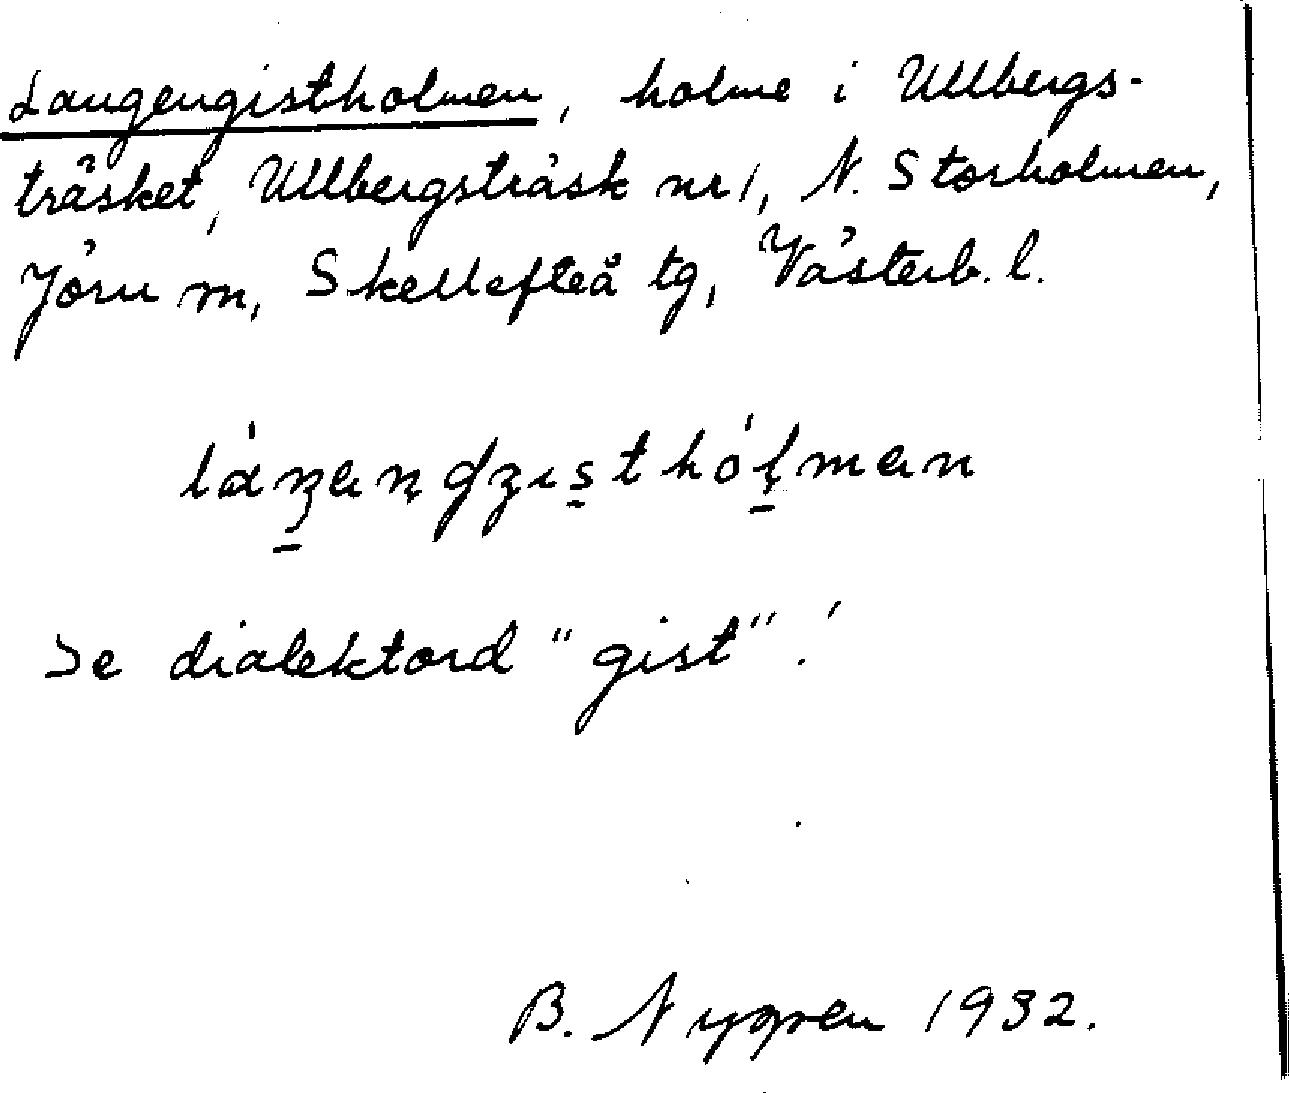 Langengistholmen, holme i Ullbergs-
träsket, Ullbergsträsk nr 1, N. Storholmen,
Jörn m, Skellefteå tg, Västerb. l.
Se dialektord "gist"!
B. Nygren 1932.